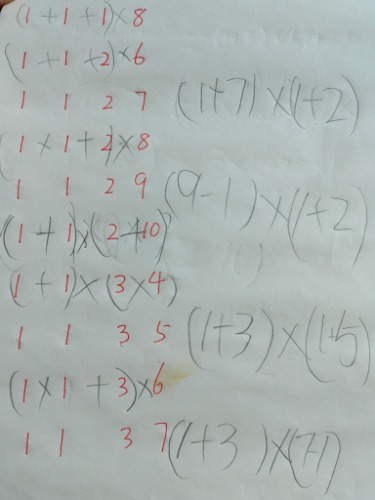 (1+1+1)×8
(1+1+2)×6
1 1 2 7 (1+7)×(1+2)
(1×1+2)×8
1 1 2 9 (9-1)×(1+2)
(1+1)×(2+10)
(1+1)×(3×4)
1 1 3 5 (1+3)×(1+5)
(1×1+3)×6
1 1 3 7 (1+3)×(7-1)